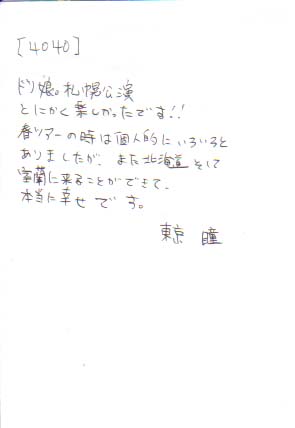 [4040]
ドリ娘。札幌公演
とにかく楽しかったです!!
春ツアーの時は個人的にいろいろと
ありましたが、また北海道そして
室蘭に来ることができて、
本当に幸せです。
東京 瞳